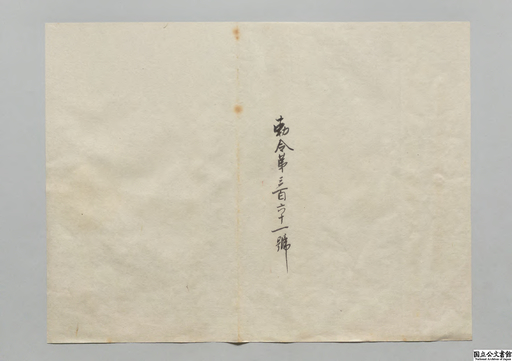 勅令第三百六十一號
国立公文書館
National Archives of Japan